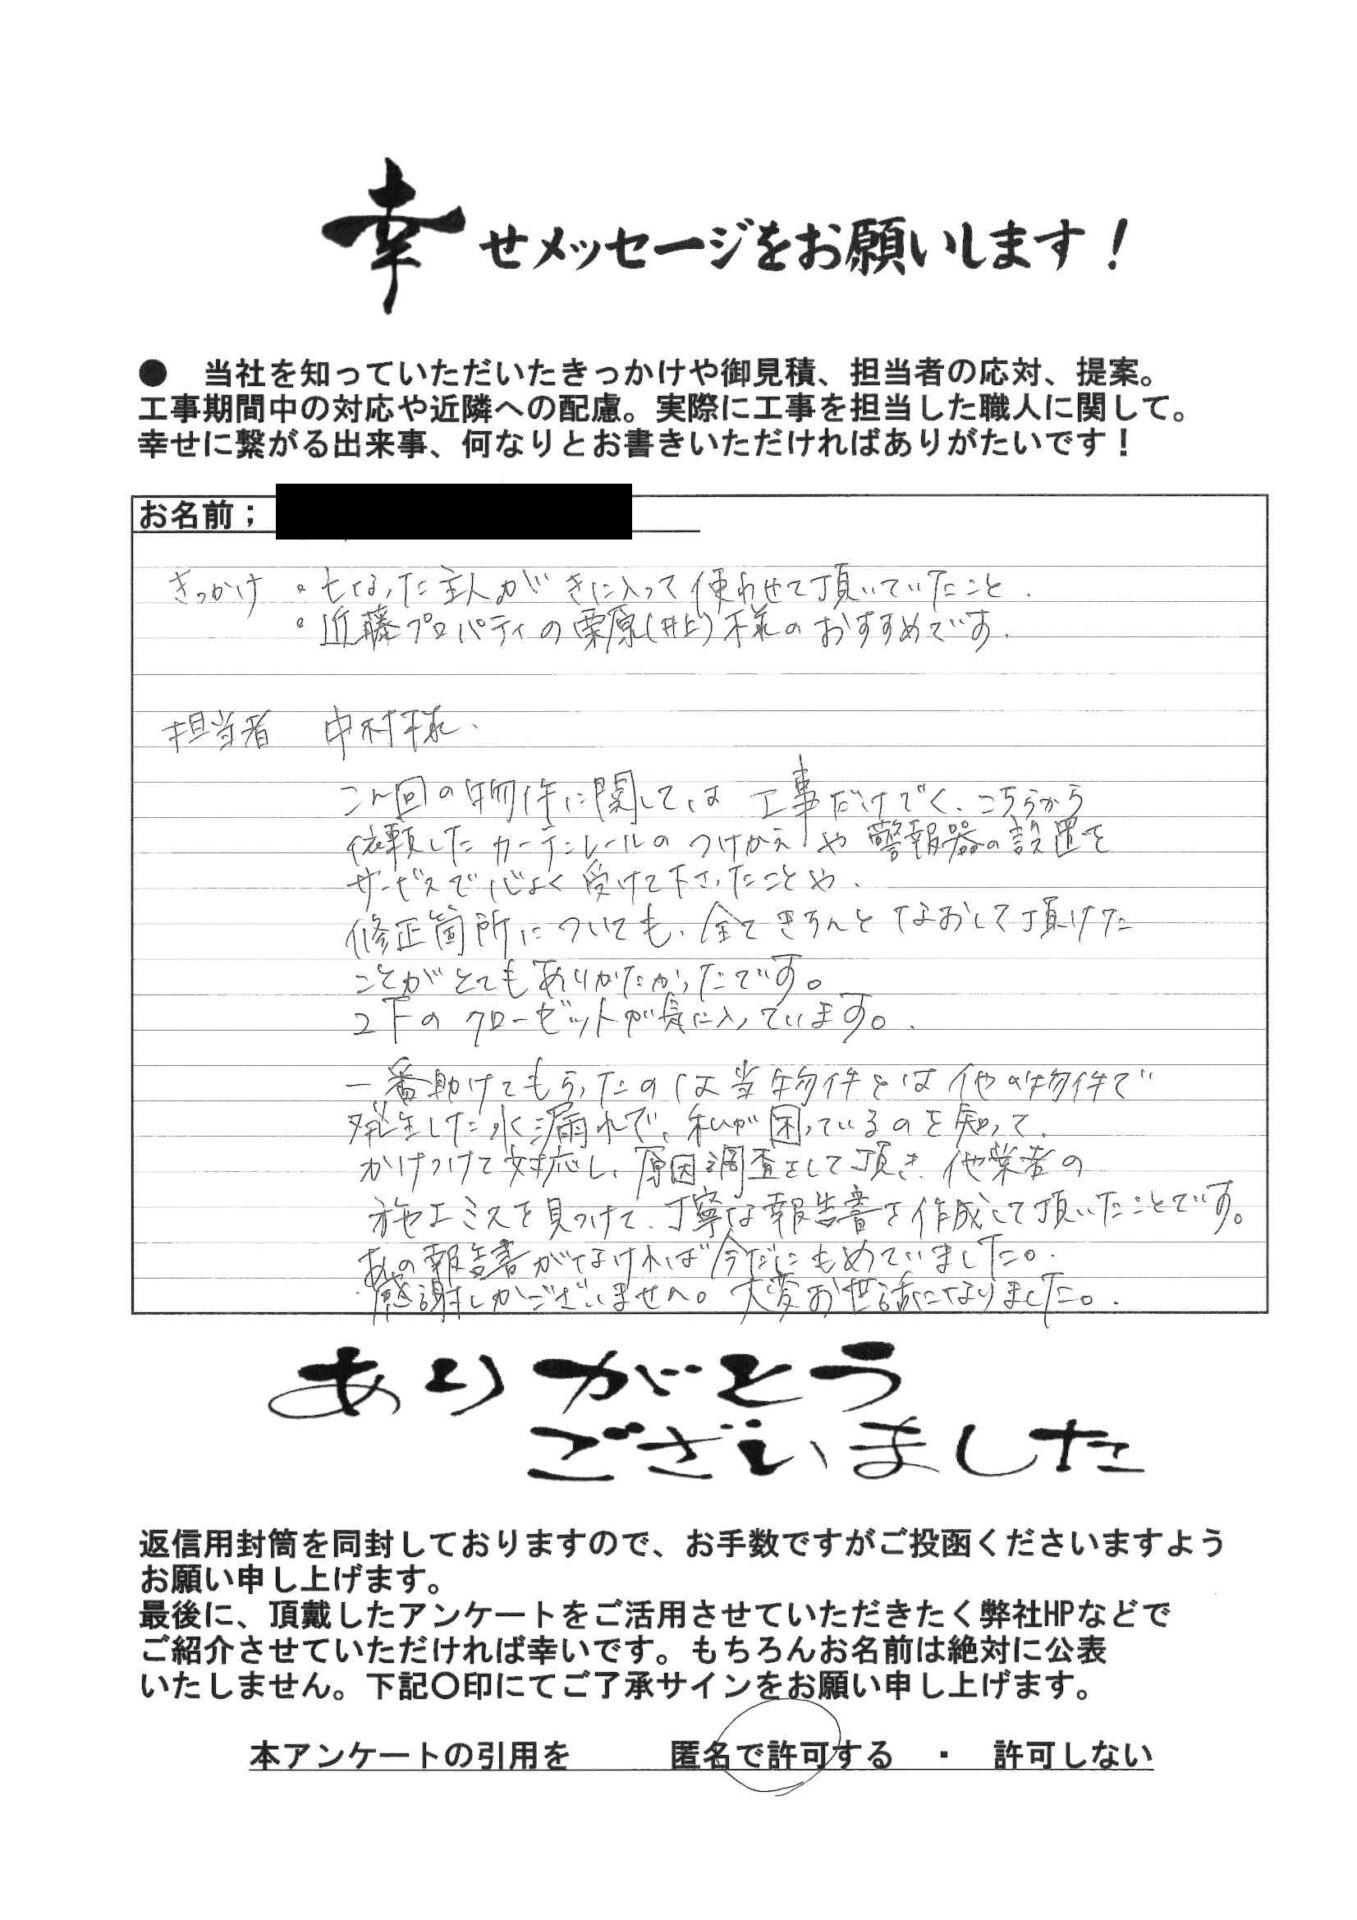 幸せメッセージをお願いします！
●　当社を知っていただいたきっかけや御見積、担当者の応対、提案。
工事期間中の対応や近隣への配慮。実際に工事を担当した職人に関して。
幸せに繋がる出来事、何なりとお書きいただければありがたいです！
お名前；
きっかけ ・亡なった主人がきに入って使わせて頂いていたこと.
・近藤プロパティの栗原(井上)様のおすすめです.
担当者　中村様.
こん回の物件に関しては工事だけでく、こちらから
依頼したカーテンレールのつけかえや警報器の設置を
サービスで心よく受けて下さったことや、
修正箇所についても、全てきちんとなおして頂けた
ことがとてもありがたかったです。
2Fのクローゼットが気に入っています。
一番助けてもらったのは当物件とは他の物件で
発生した水漏れで、私が困っているのを知って、
かけつけて対応し、原因調査をして頂き、他業者の
施工ミスを見つけて、丁寧な報告書を作成して頂いたことです。
あの報告書がなければ今だにもめていました。
感謝しかございません。大変お世話になりました。
ありがとう
ございました
返信用封筒を同封しておりますので、お手数ですがご投函くださいますよう
お願い申し上げます。
最後に、頂戴したアンケートをご活用させていただきたく弊社HPなどで
ご紹介させていただければ幸いです。もちろんお名前は絶対に公表
いたしません。下記〇印にてご了承サインをお願い申し上げます。
本アンケートの引用を　　匿名で許可する　・　許可しない